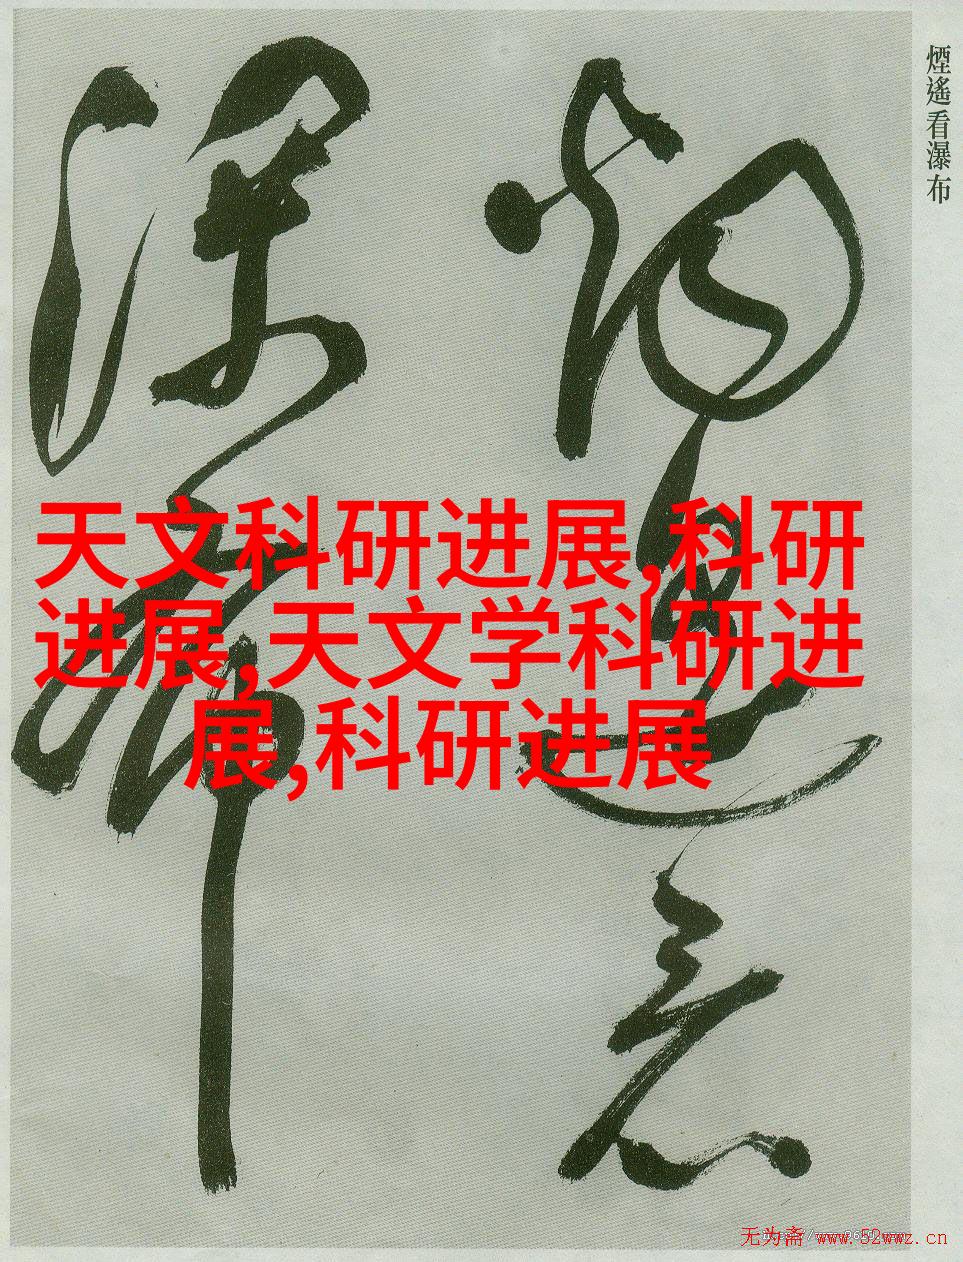 煙遙看瀑布
煙遙看
瀑布
天文科研进展,科研
进展,天文学科研进
展,科研进展
无为斋 www.52wwz.cn